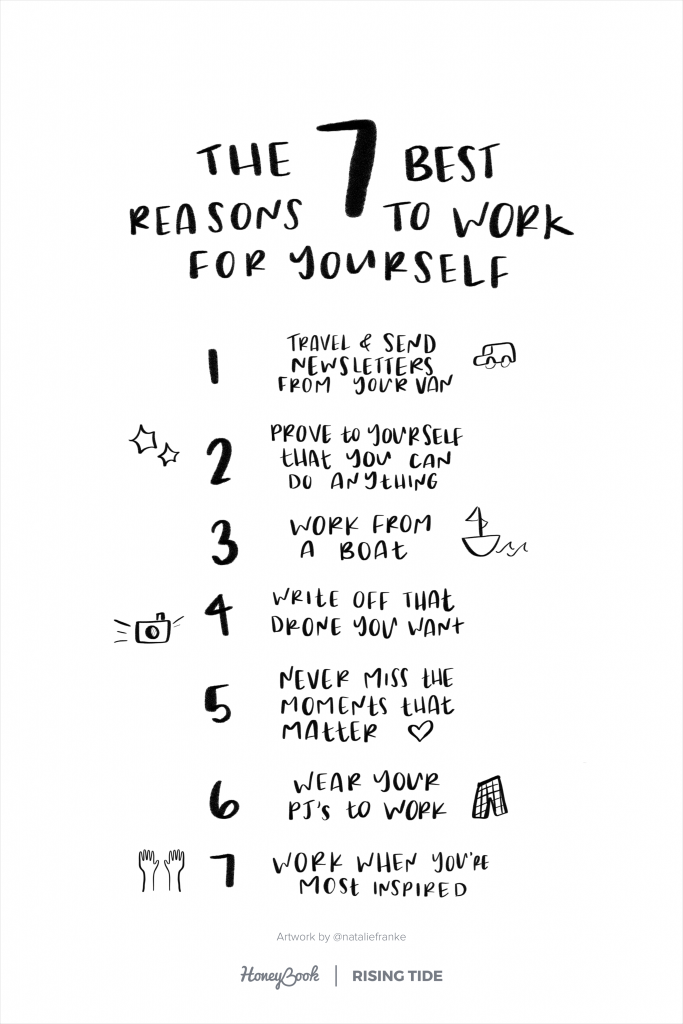 THE 7 BEST
REASONS TO WORK
FOR YOURSELF
1 TRAVEL & SEND
NEWSLETTERS
FROM YOUR VAN
2 PROVE to YOURSELF
tHAt YOU CAN
DO ANYtHING
3 WORK FROM
A BOAt
4 WRItE OFF THAt
DRONE YOU WANt
5 NEVER MISS tHE
MOMENtS tHAt
MAttER
6 WEAR YOUR
PJ's to WORK
7 WORK WHEN YOU'RE
MOSt INSPIRED
Artwork by @nataliefranke
HoneyBook | RISING TIDE